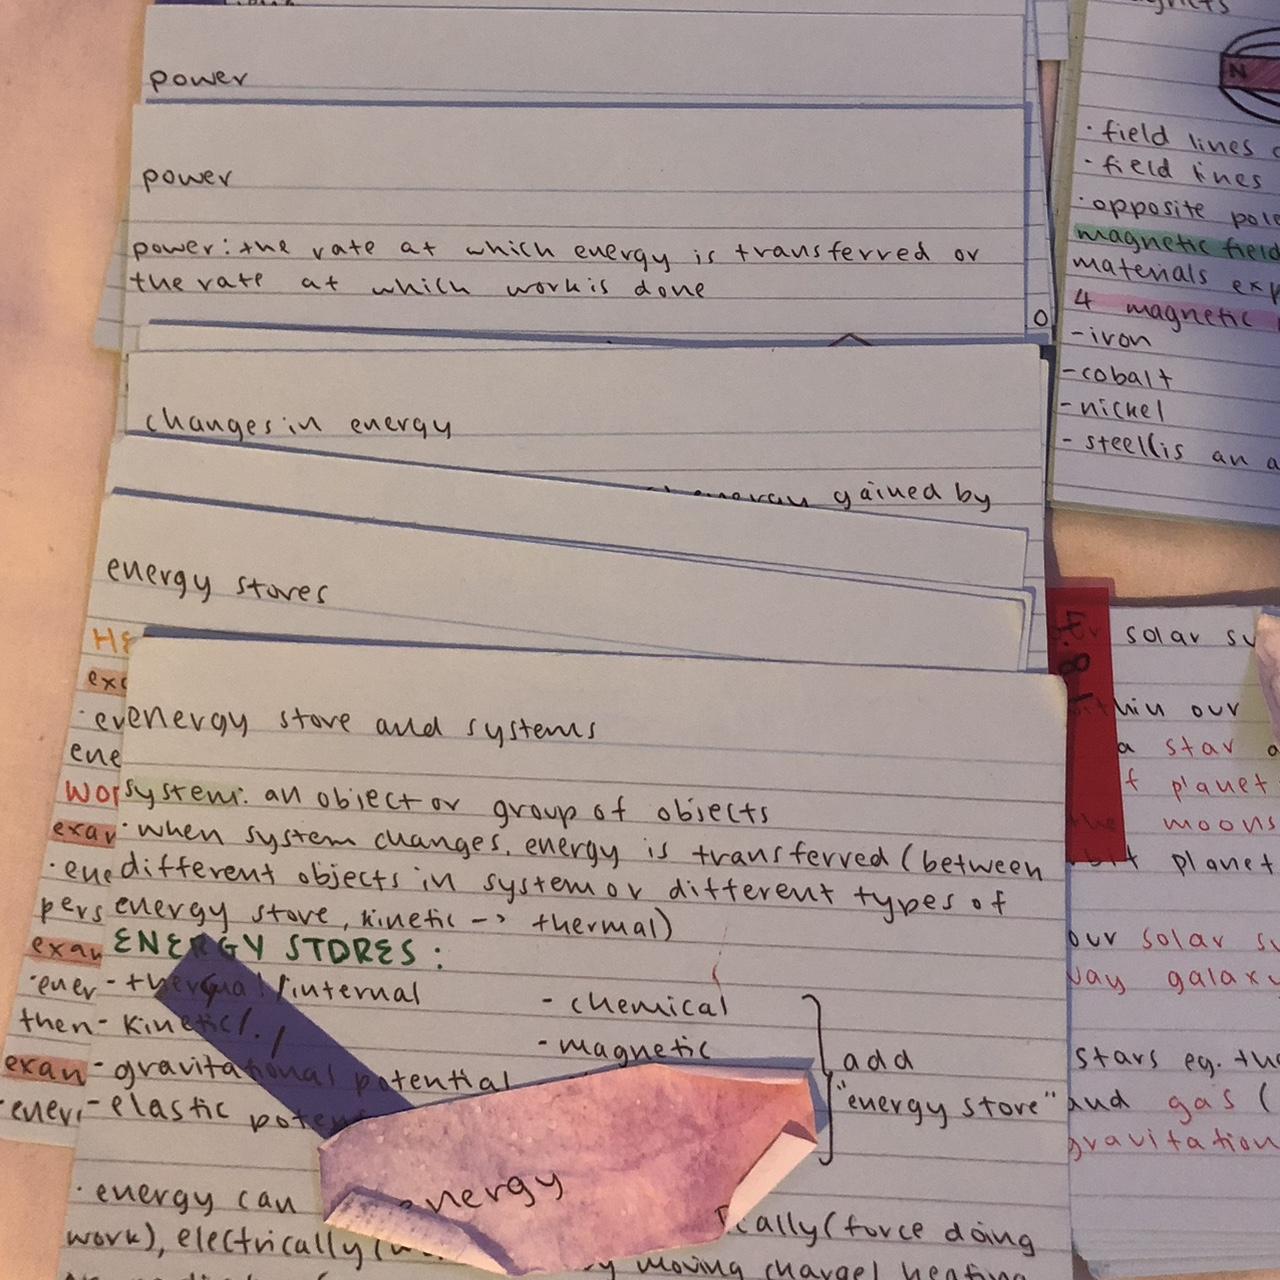 power
power
power: the rate at which energy is transferred or
the rate at which work is done
changes in energy
energy gained by
energy stores
exa
ene
energy store and systems
system: an object or group of objects
exam
· when system changes, energy is transferred (between
different objects in system or different types of
pers
energy store, kinetic -> thermal)
exam
ENERGY STORES:
- thermal/internal
- chemical
then
- kinetic
- magnetic
exam
- gravitational potential
- elastic
add
"energy store"
energy
· energy can
(force doing
work), electrically (
moving charge) heating
N
· field lines
· field lines
· opposite
magnetic field
materials
4 magnetic
- iron
- cobalt
- nickel
- steel (is an
solar
our
a star
planet
moons
planet
our solar
galaxy
stars eg. the
and gas (
gravitation